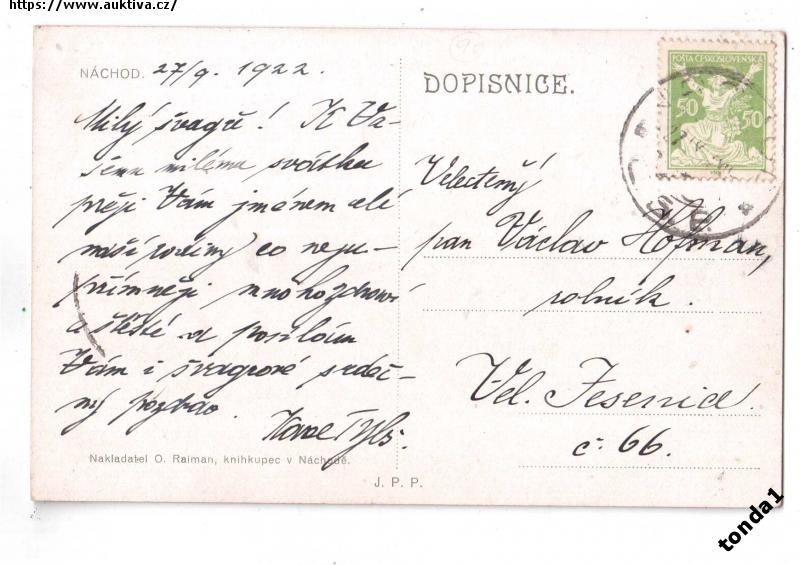 https://www.auktiva.cz/
NÁCHOD. 27/9. 1922.
Milý švagře! K Va-
šemu milému svátku
přeji Vám jménem celé
naší rodiny co nejú-
přímněji mnoho zdraví
a štěstí a posílám
Vám i švagrové srdeč-
ný pozdrav.
Karel
Nakladatel O. Raiman, knihkupec v Náchodě.
DOPISNICE.
POŠTA ČESKOSLOVENSKÁ
50 50
Velectěný
pan Václav Hofman,
rolník.
Vel. Jesenice.
č. 66.
J. P. P.
tonda1